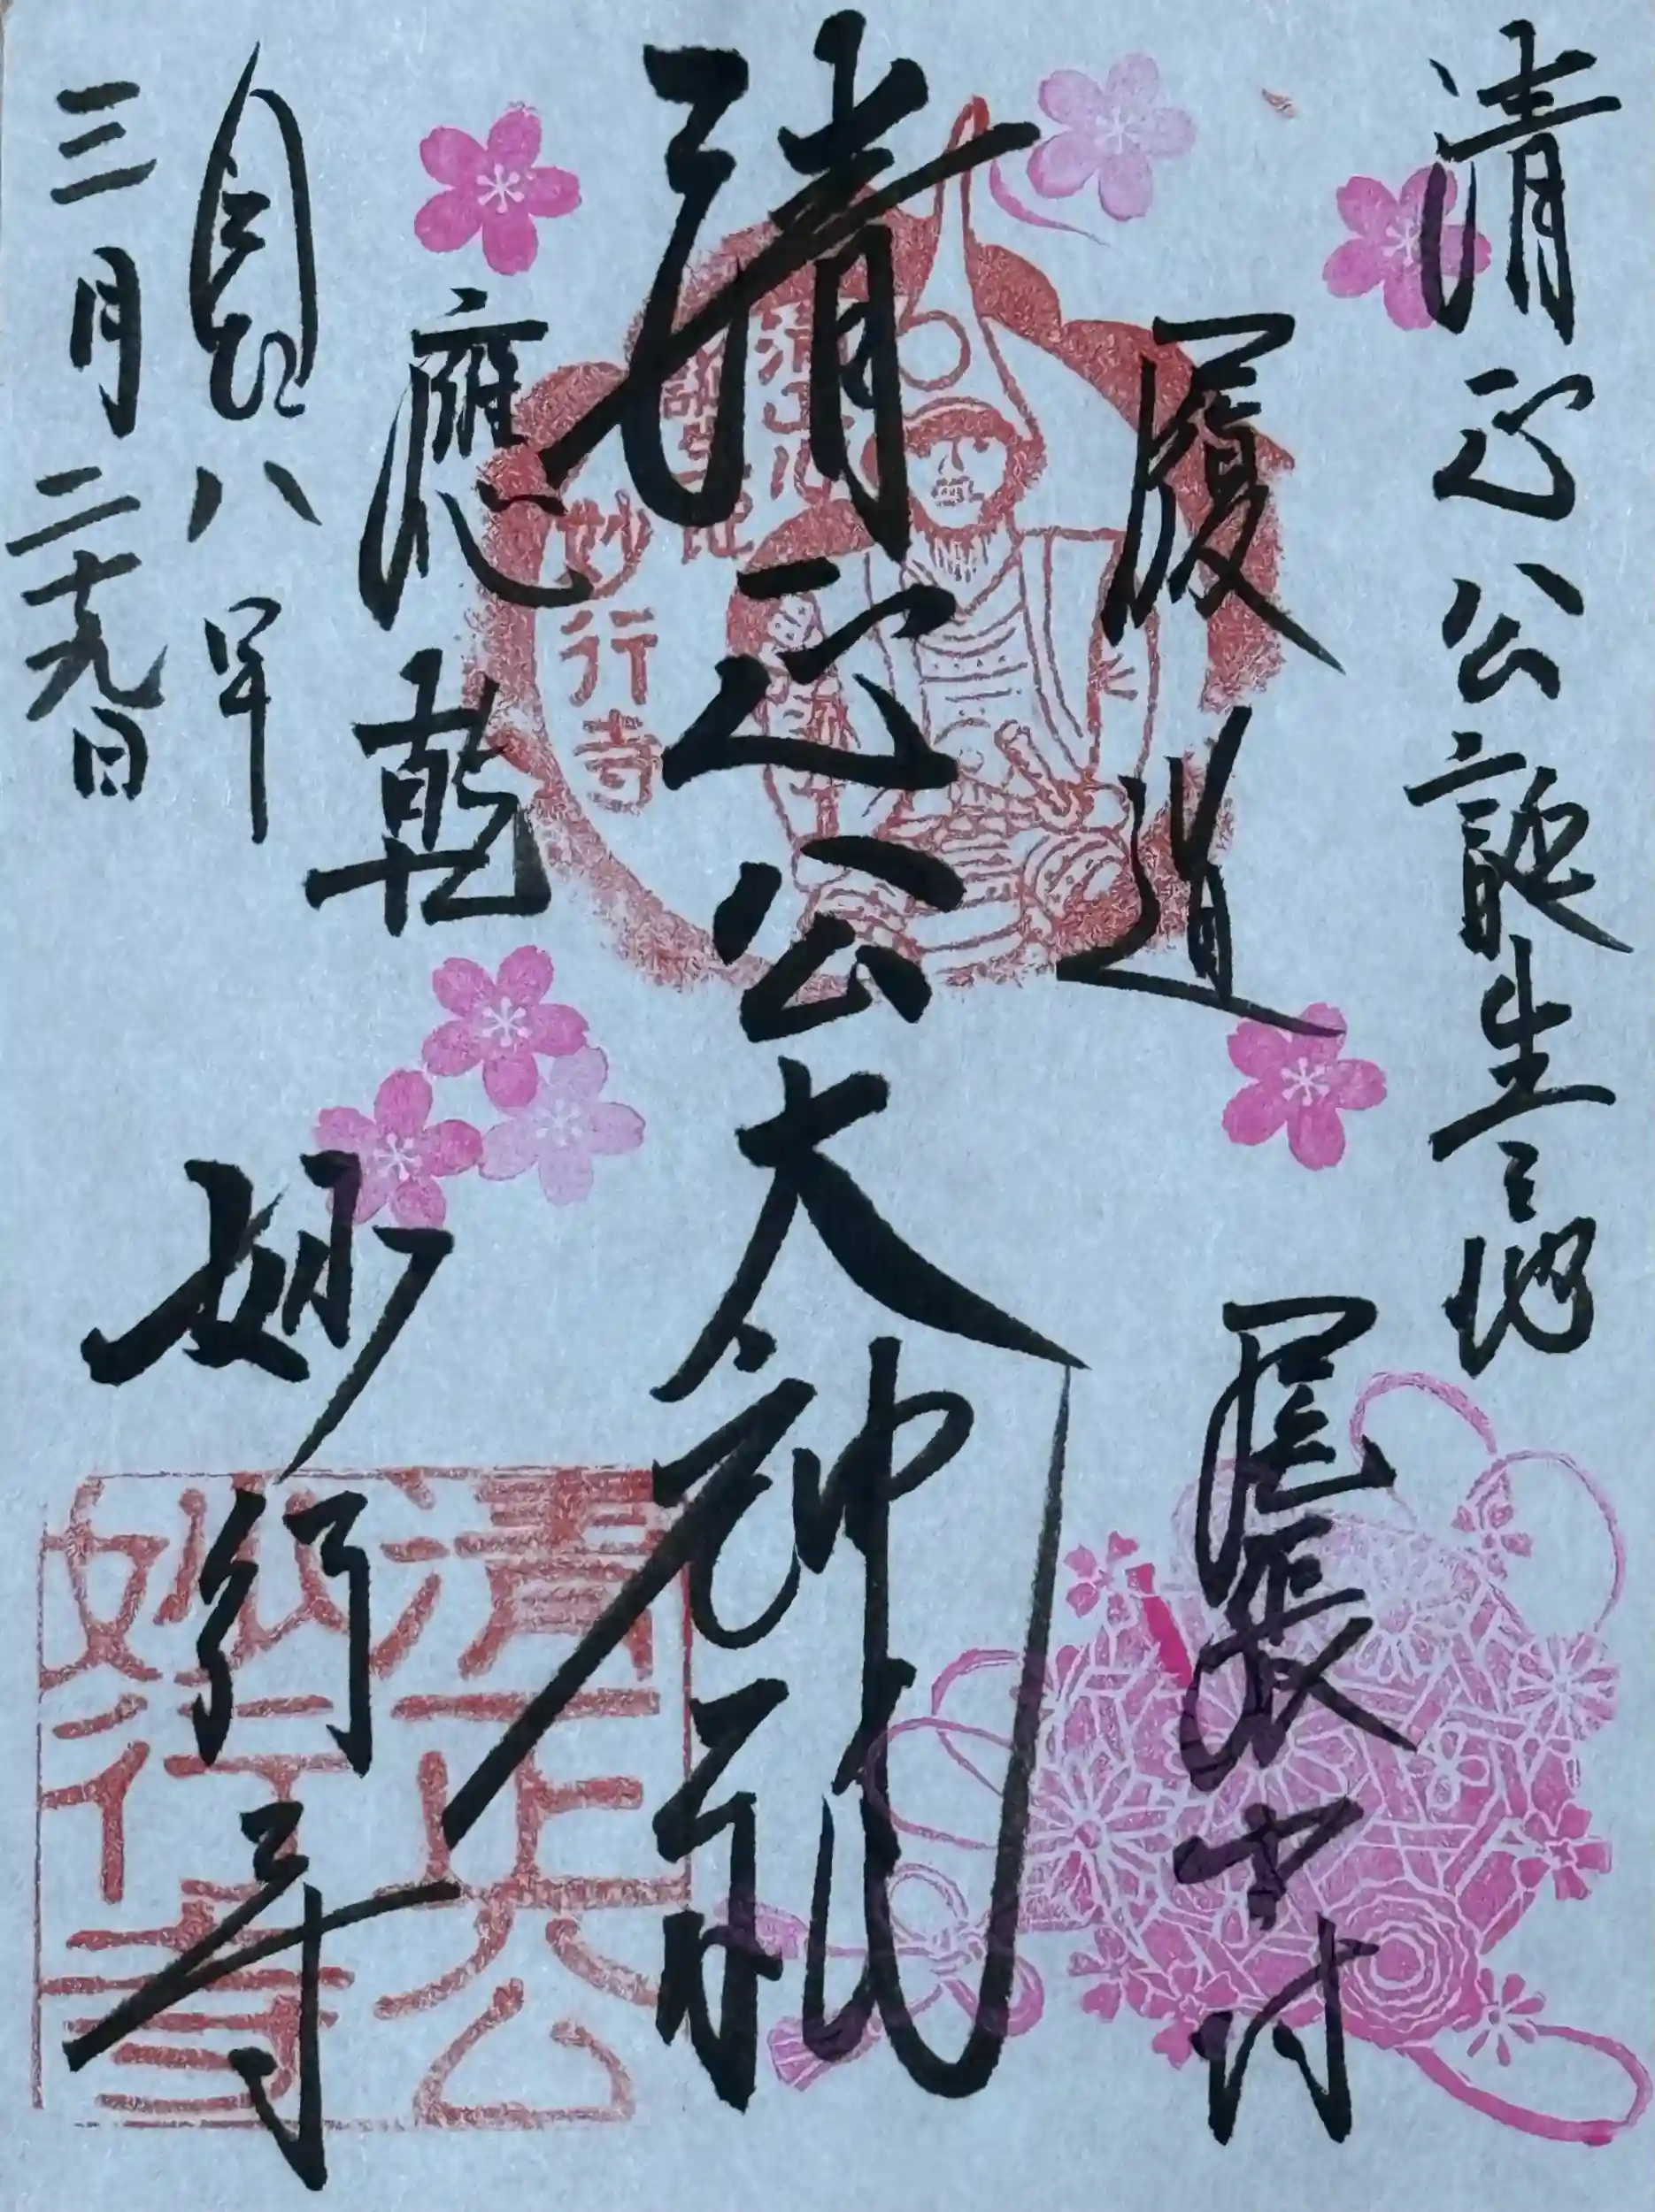 清正公誕生
履道
尾張中村
清正公大神祇
應乾
妙行寺
八年
三月二十九日
清正公
誕生地
妙行寺
清正公
妙行寺